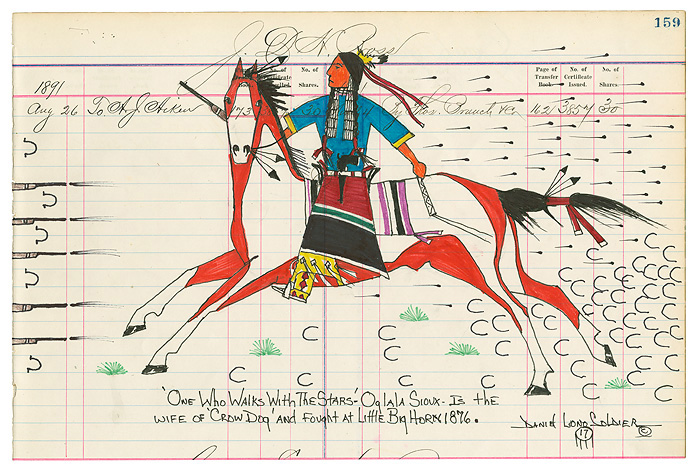 159
J. D. H. Ross
Page of Transfer Book. No. of Certificate Issued. No. of Shares.
1891
Aug 26 To A. J. Aiken 173 By Thos. Branch & Co 162 3854 30
"One Who Walks With The Stars"- Oglala Sioux - Is the
wife of "Crow Dog" and fought at Little Big Horn 1876.
Daniel Long Soldier
17
©